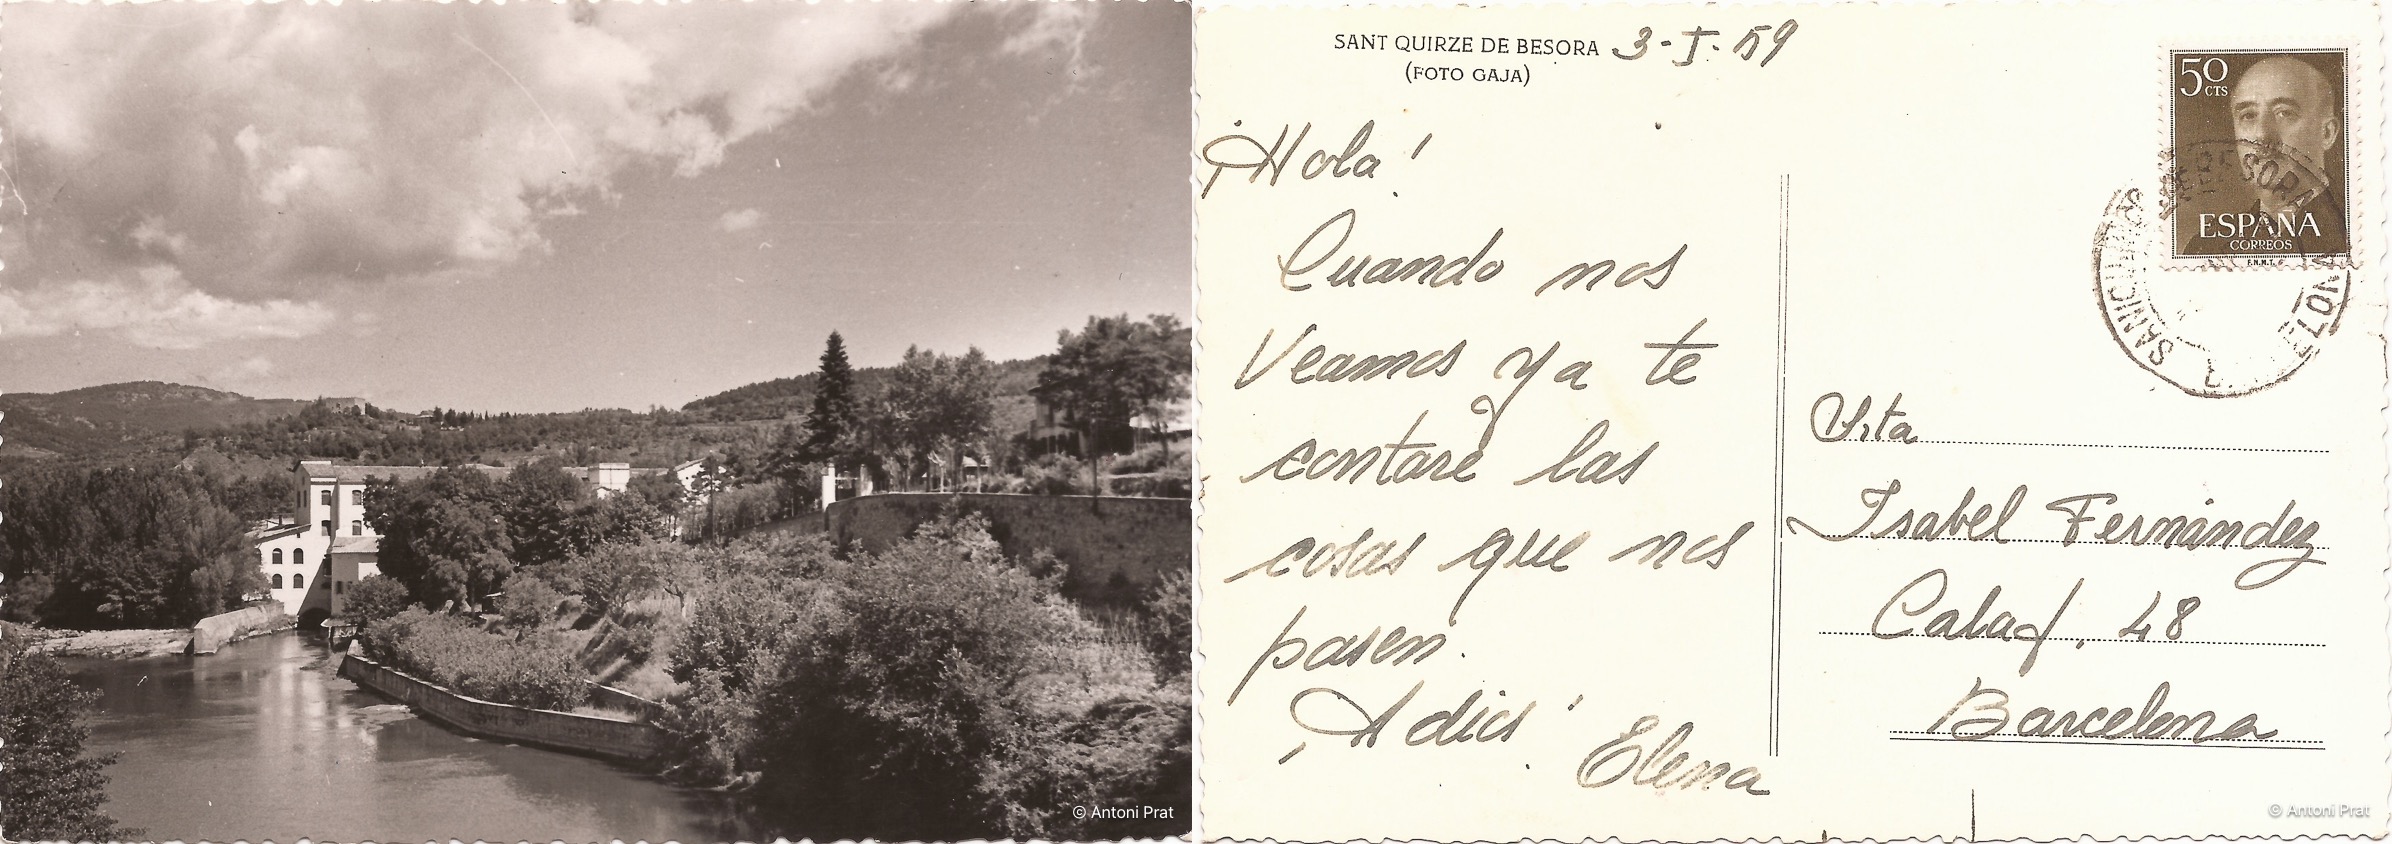 © Antoni Prat
SANT QUIRZE DE BESORA 3-I-59
(FOTO GAJA)
¡Hola!
Cuando nos
Veamos ya te
contaré las
cosas que nos
pasen.
¡Adios!
Elena
50
CTS
ESPAÑA
CORREOS
F.N.M.T.
Srta
Isabel Fernández
Calaf, 48
Barcelona
© Antoni Prat